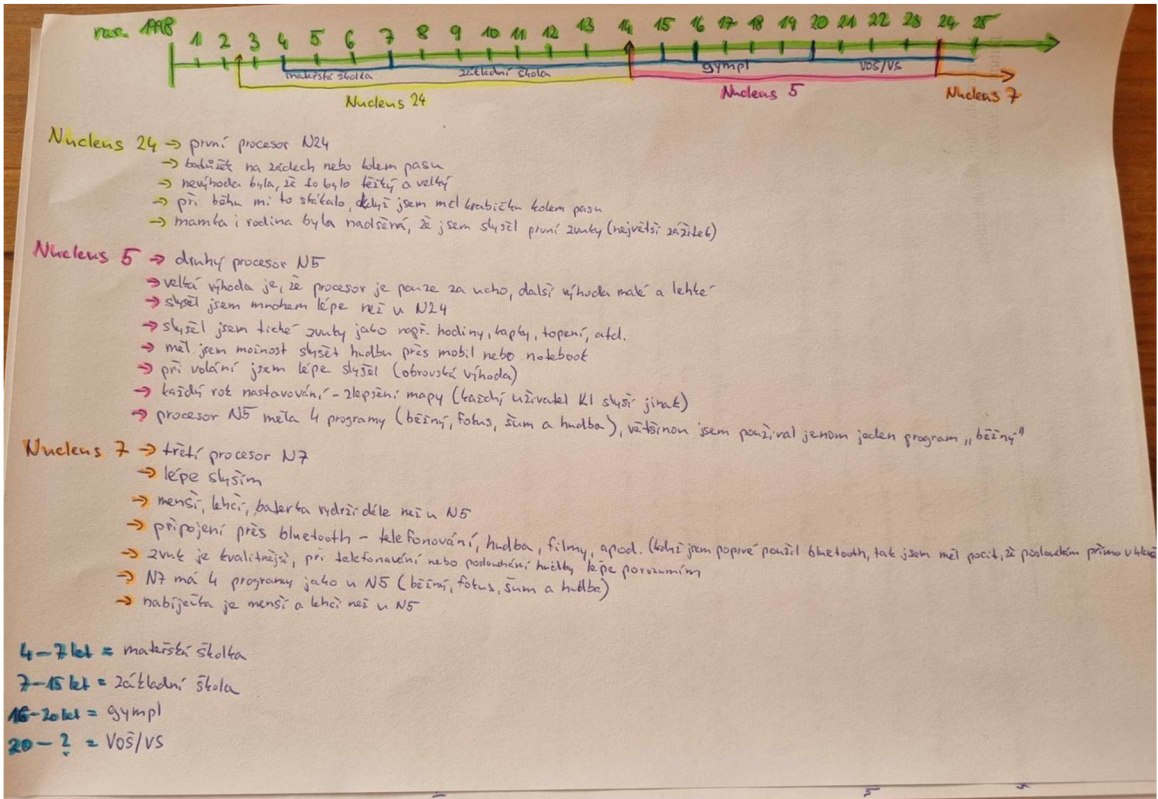 nar. 1998 1 2 3 4 5 6 7 8 9 10 11 12 13 14 15 16 17 18 19 20 21 22 23 24 25
mateřská školka základní škola gympl VOŠ/VŠ
Nucleus 24 Nucleus 5 Nucleus 7
Nucleus 24 → první procesor N24
→ na zádech nebo kolem pasu
→ nevýhoda byla, že to bylo těžký a velký
→ při běhu mi to skákalo, když jsem měl krabičku kolem pasu
→ mamka i rodina byla nadšená, že jsem slyšel první zvuky (největší zážitek)
Nucleus 5 → druhý procesor N5
→ velká výhoda je, že procesor je pouze za ucho, další výhoda malé a lehké
→ slyšel jsem mnohem lépe než u N24
→ slyšel jsem tiché zvuky jako např. hodiny, kapky, topení, atd.
→ měl jsem možnost slyšet hudbu přes mobil nebo notebook
→ při volání jsem lépe slyšel (obrovská výhoda)
→ každý rok nastavování - zlepšení mapy (každý uživatel KI slyší jinak)
→ procesor N5 měla 4 programy (běžný, fokus, šum a hudba), většinou jsem používal jenom jeden program „běžný"
Nucleus 7 → třetí procesor N7
→ lépe slyším
→ menší, lehčí, baterka vydrží déle než u N5
→ připojení přes bluetooth - telefonování, hudba, filmy, apod. (když jsem poprvé použil bluetooth, tak jsem měl pocit, že poslouchám přímo v hlavě
→ zvuk je kvalitnější, při telefonování nebo poslouchání hudby lépe porozumím
→ N7 má 4 programy jako u N5 (běžný, fokus, šum a hudba)
→ nabíječka je menší a lehčí než u N5
4-7 let = mateřská školka
7-15 let = základní škola
16-20 let = gympl
20 - ? = VOŠ/VŠ